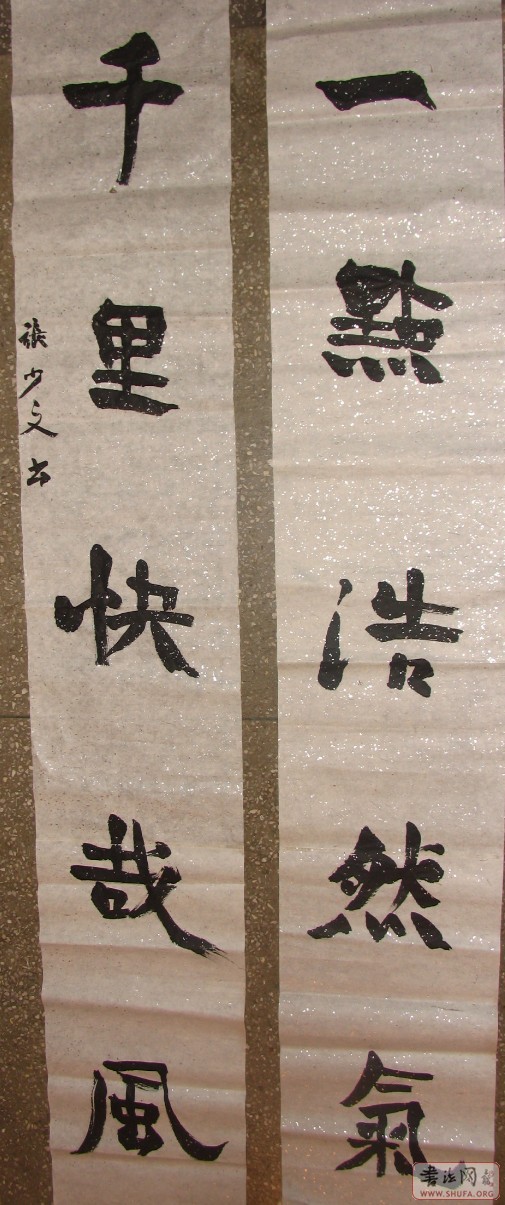 一點浩然氣
千里快哉風
張少文書
书法网报
WWW.SHUFA.ORG